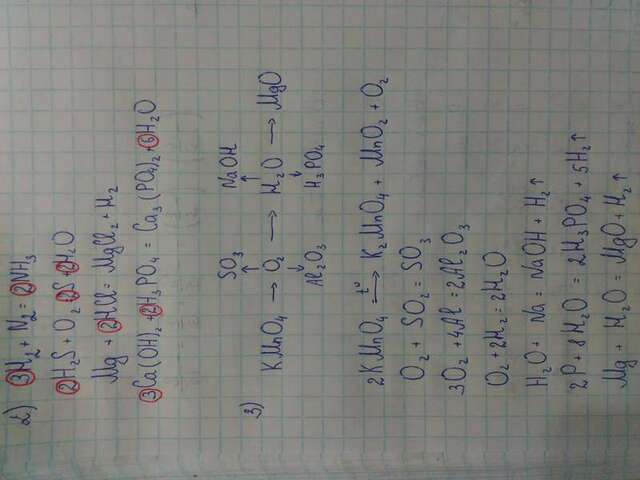 2) 3H₂ + N₂ = 2NH₃
2H₂S + O₂ 2S + 2H₂O
Mg + 2HCl = MgCl₂ + H₂
3Ca(OH)₂ + 2H₃PO₄ = Ca₃(PO₄)₂ + 6H₂O
SO₃ NaOH
↑ ↑
3) KMnO₄ → O₂ → H₂O → MgO
↓ ↓
Al₂O₃ H₃PO₄
2KMnO₄ t° → K₂MnO₄ + MnO₂ + O₂
O₂ + SO₂ = SO₃
3O₂ + 4Al = 2Al₂O₃
O₂ + 2H₂ = 2H₂O
H₂O + Na = NaOH + H₂↑
2P + 8H₂O = 2H₃PO₄ + 5H₂↑
Mg + H₂O = MgO + H₂↑